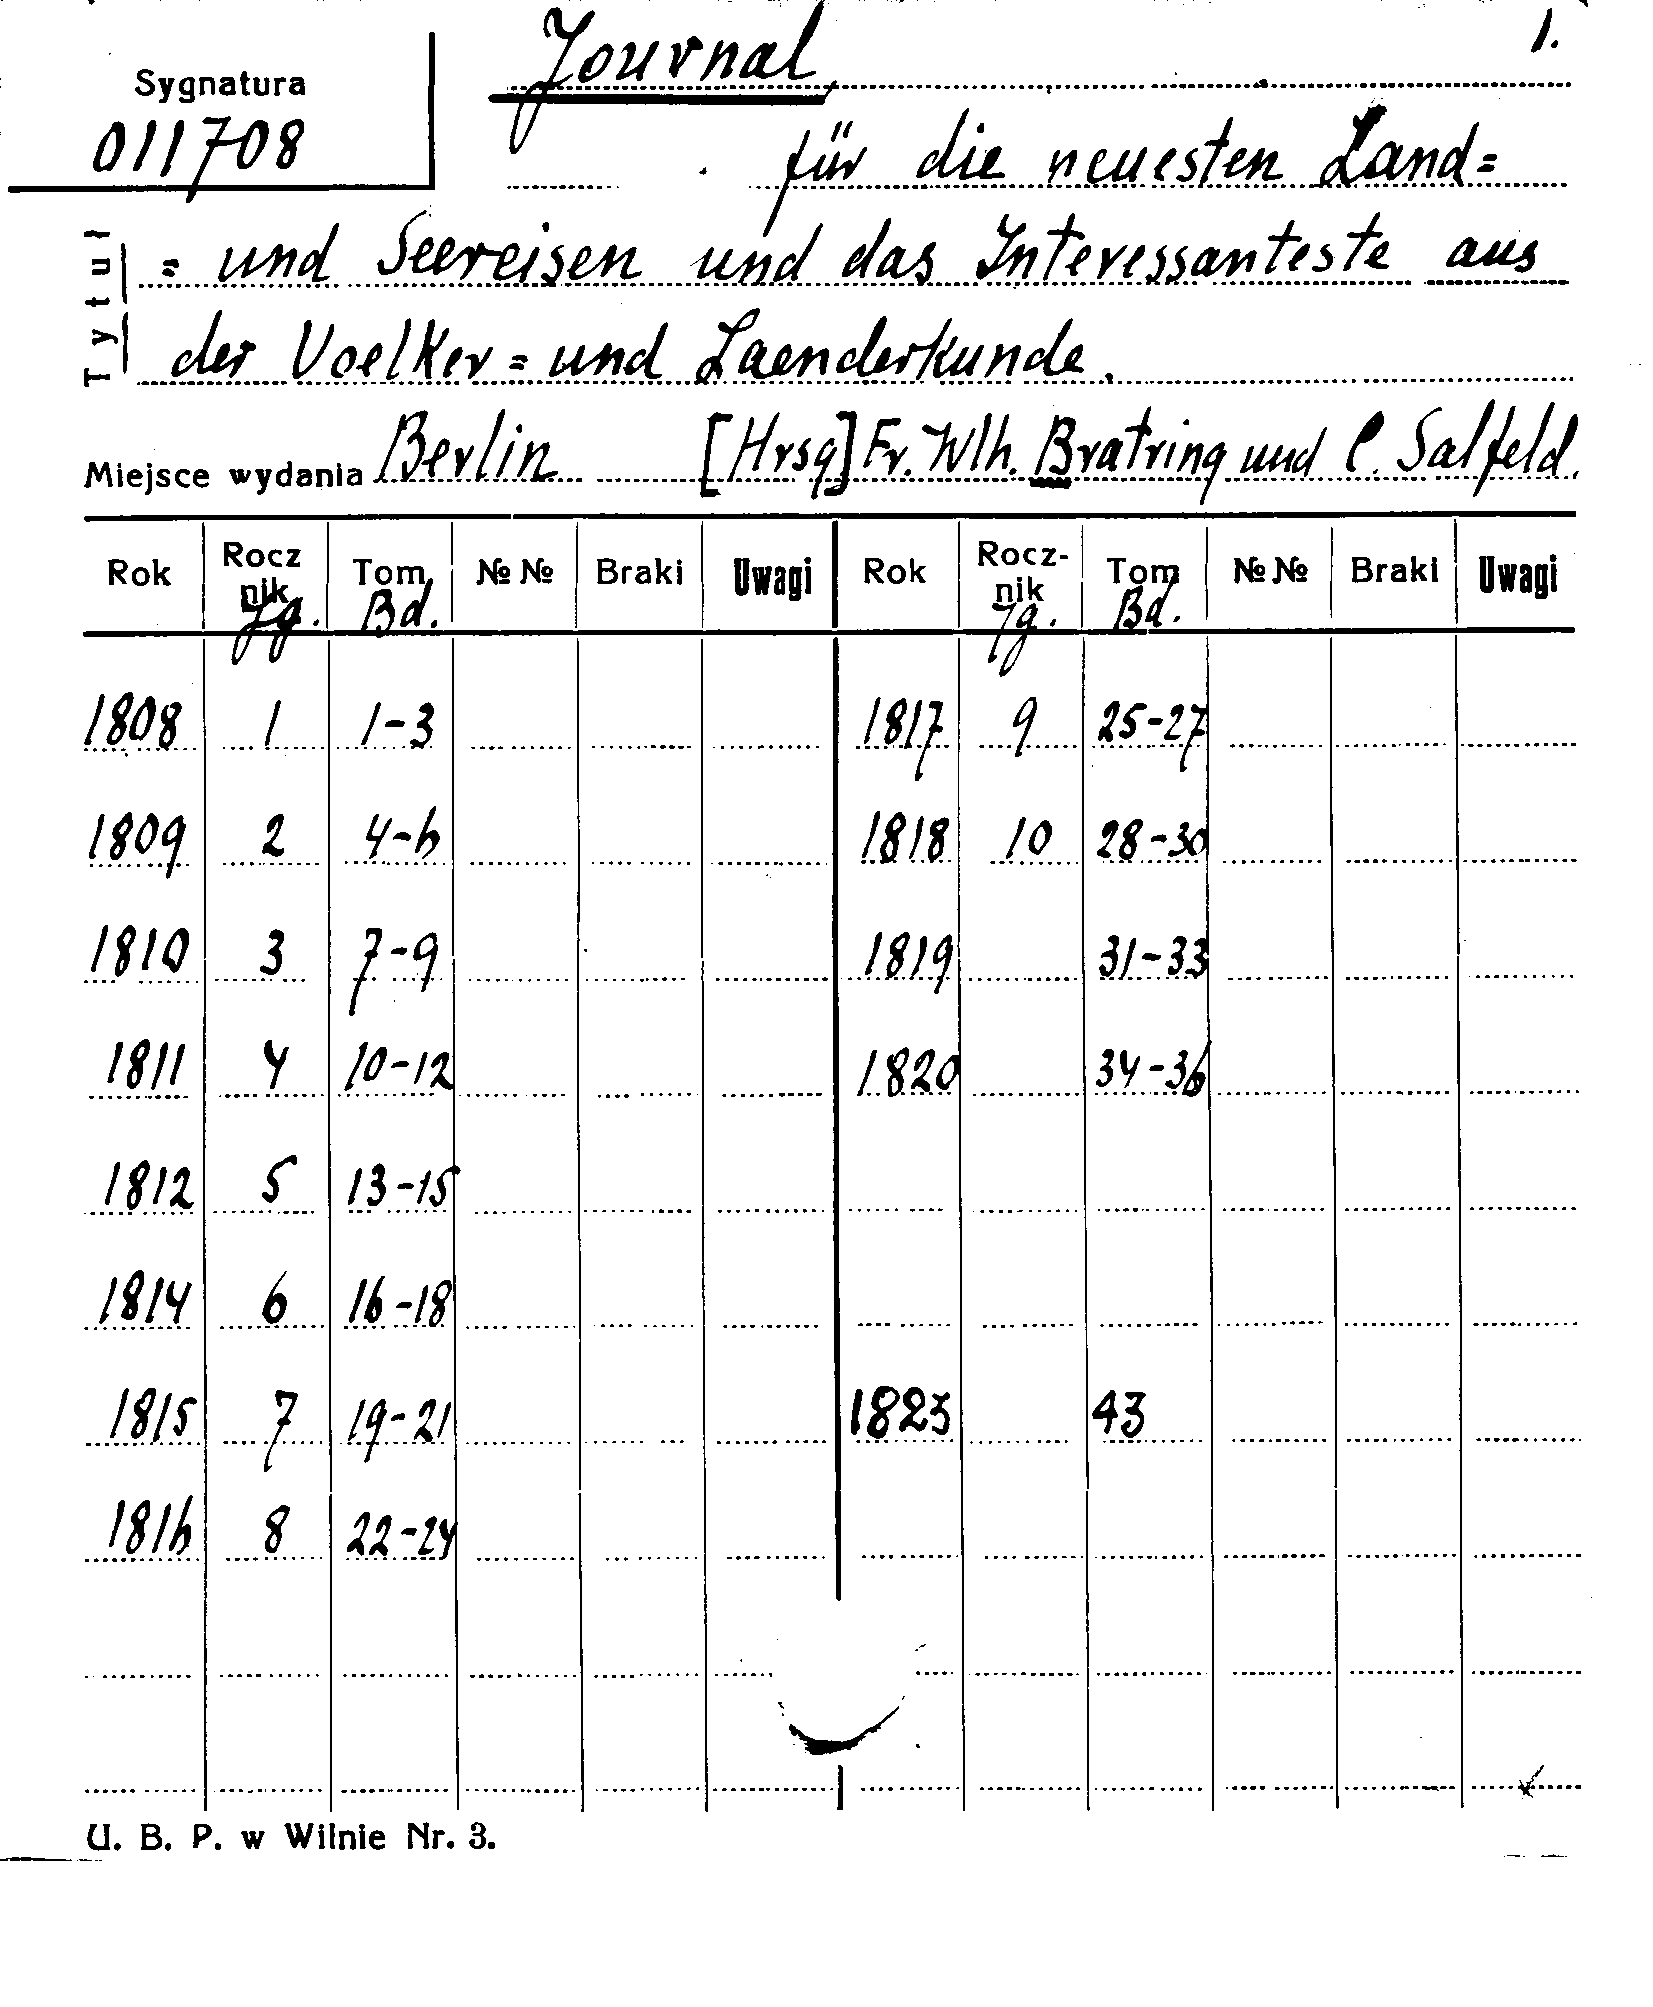 Journal 1.
Sygnatura
011708
für die neuesten Land=
Tytuł
= und Seereisen und das Interessanteste aus
der Voelker = und Laenderkunde.
Miejsce wydania Berlin [Hrsg] Fr. Wlh. Bratring und C. Salfeld.
Rok Rocz nik Jg. Tom Bd. № № Braki Uwagi Rok Rocz- nik Jg. Tom Bd. № № Braki Uwagi
1808 1 1-3 1817 9 25-27
1809 2 4-6 1818 10 28-30
1810 3 7-9 1819 31-33
1811 4 10-12 1820 34-36
1812 5 13-15
1814 6 16-18
1815 7 19-21 1823 43
1816 8 22-24
U. B. P. w Wilnie Nr. 3.